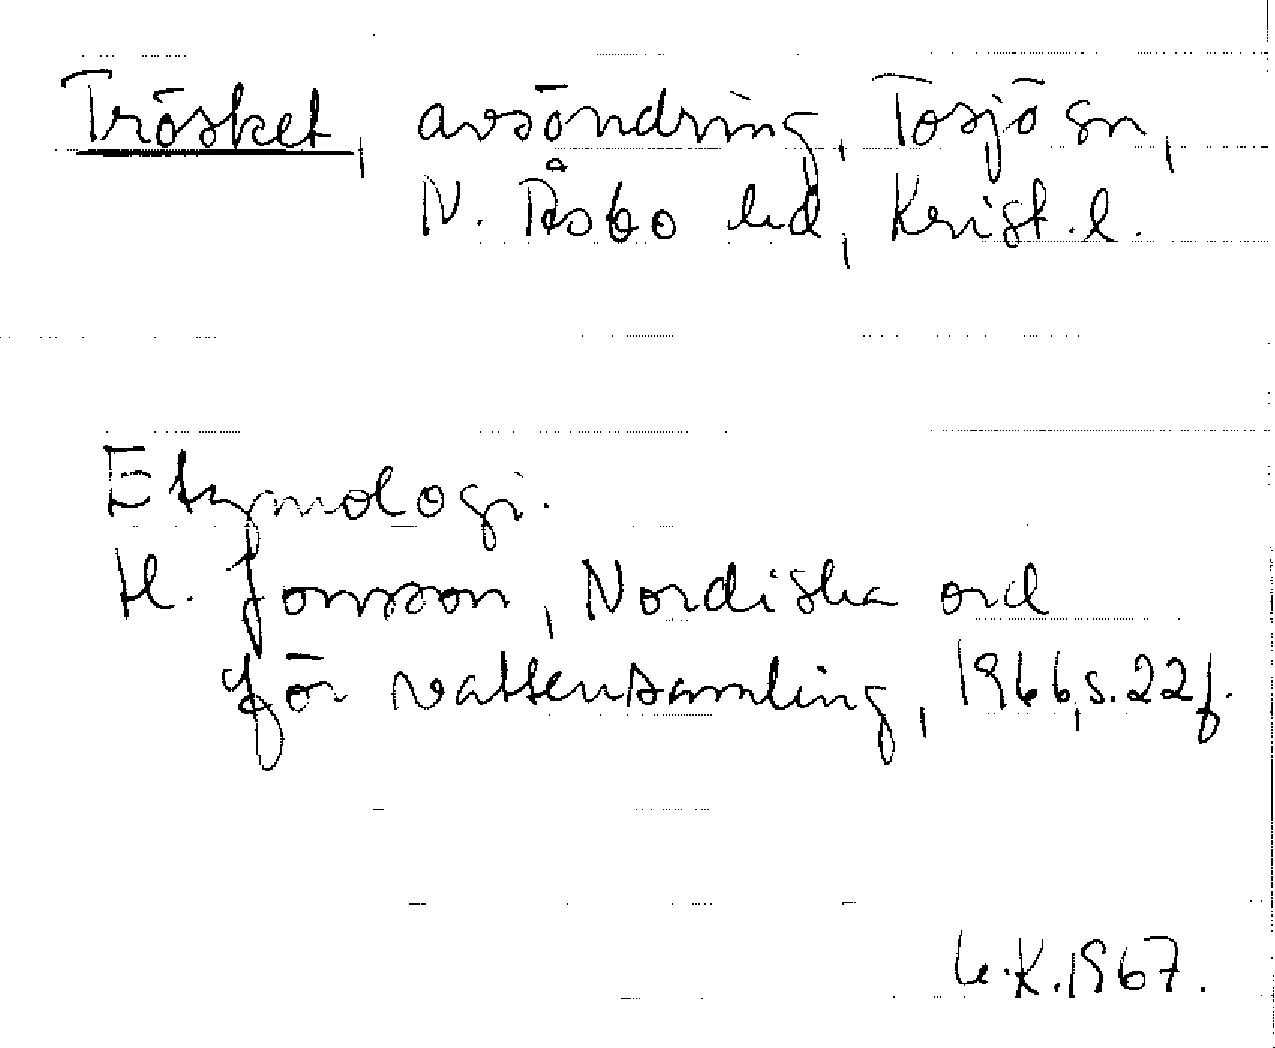 Trösket, avsöndring, Tosjö sn,
N. Åsbo hd, Krist. l.
Etymologi.
H. Jonsson, Nordiska ord
för vattensamling, 1966, s. 22 f.
K. 1967.